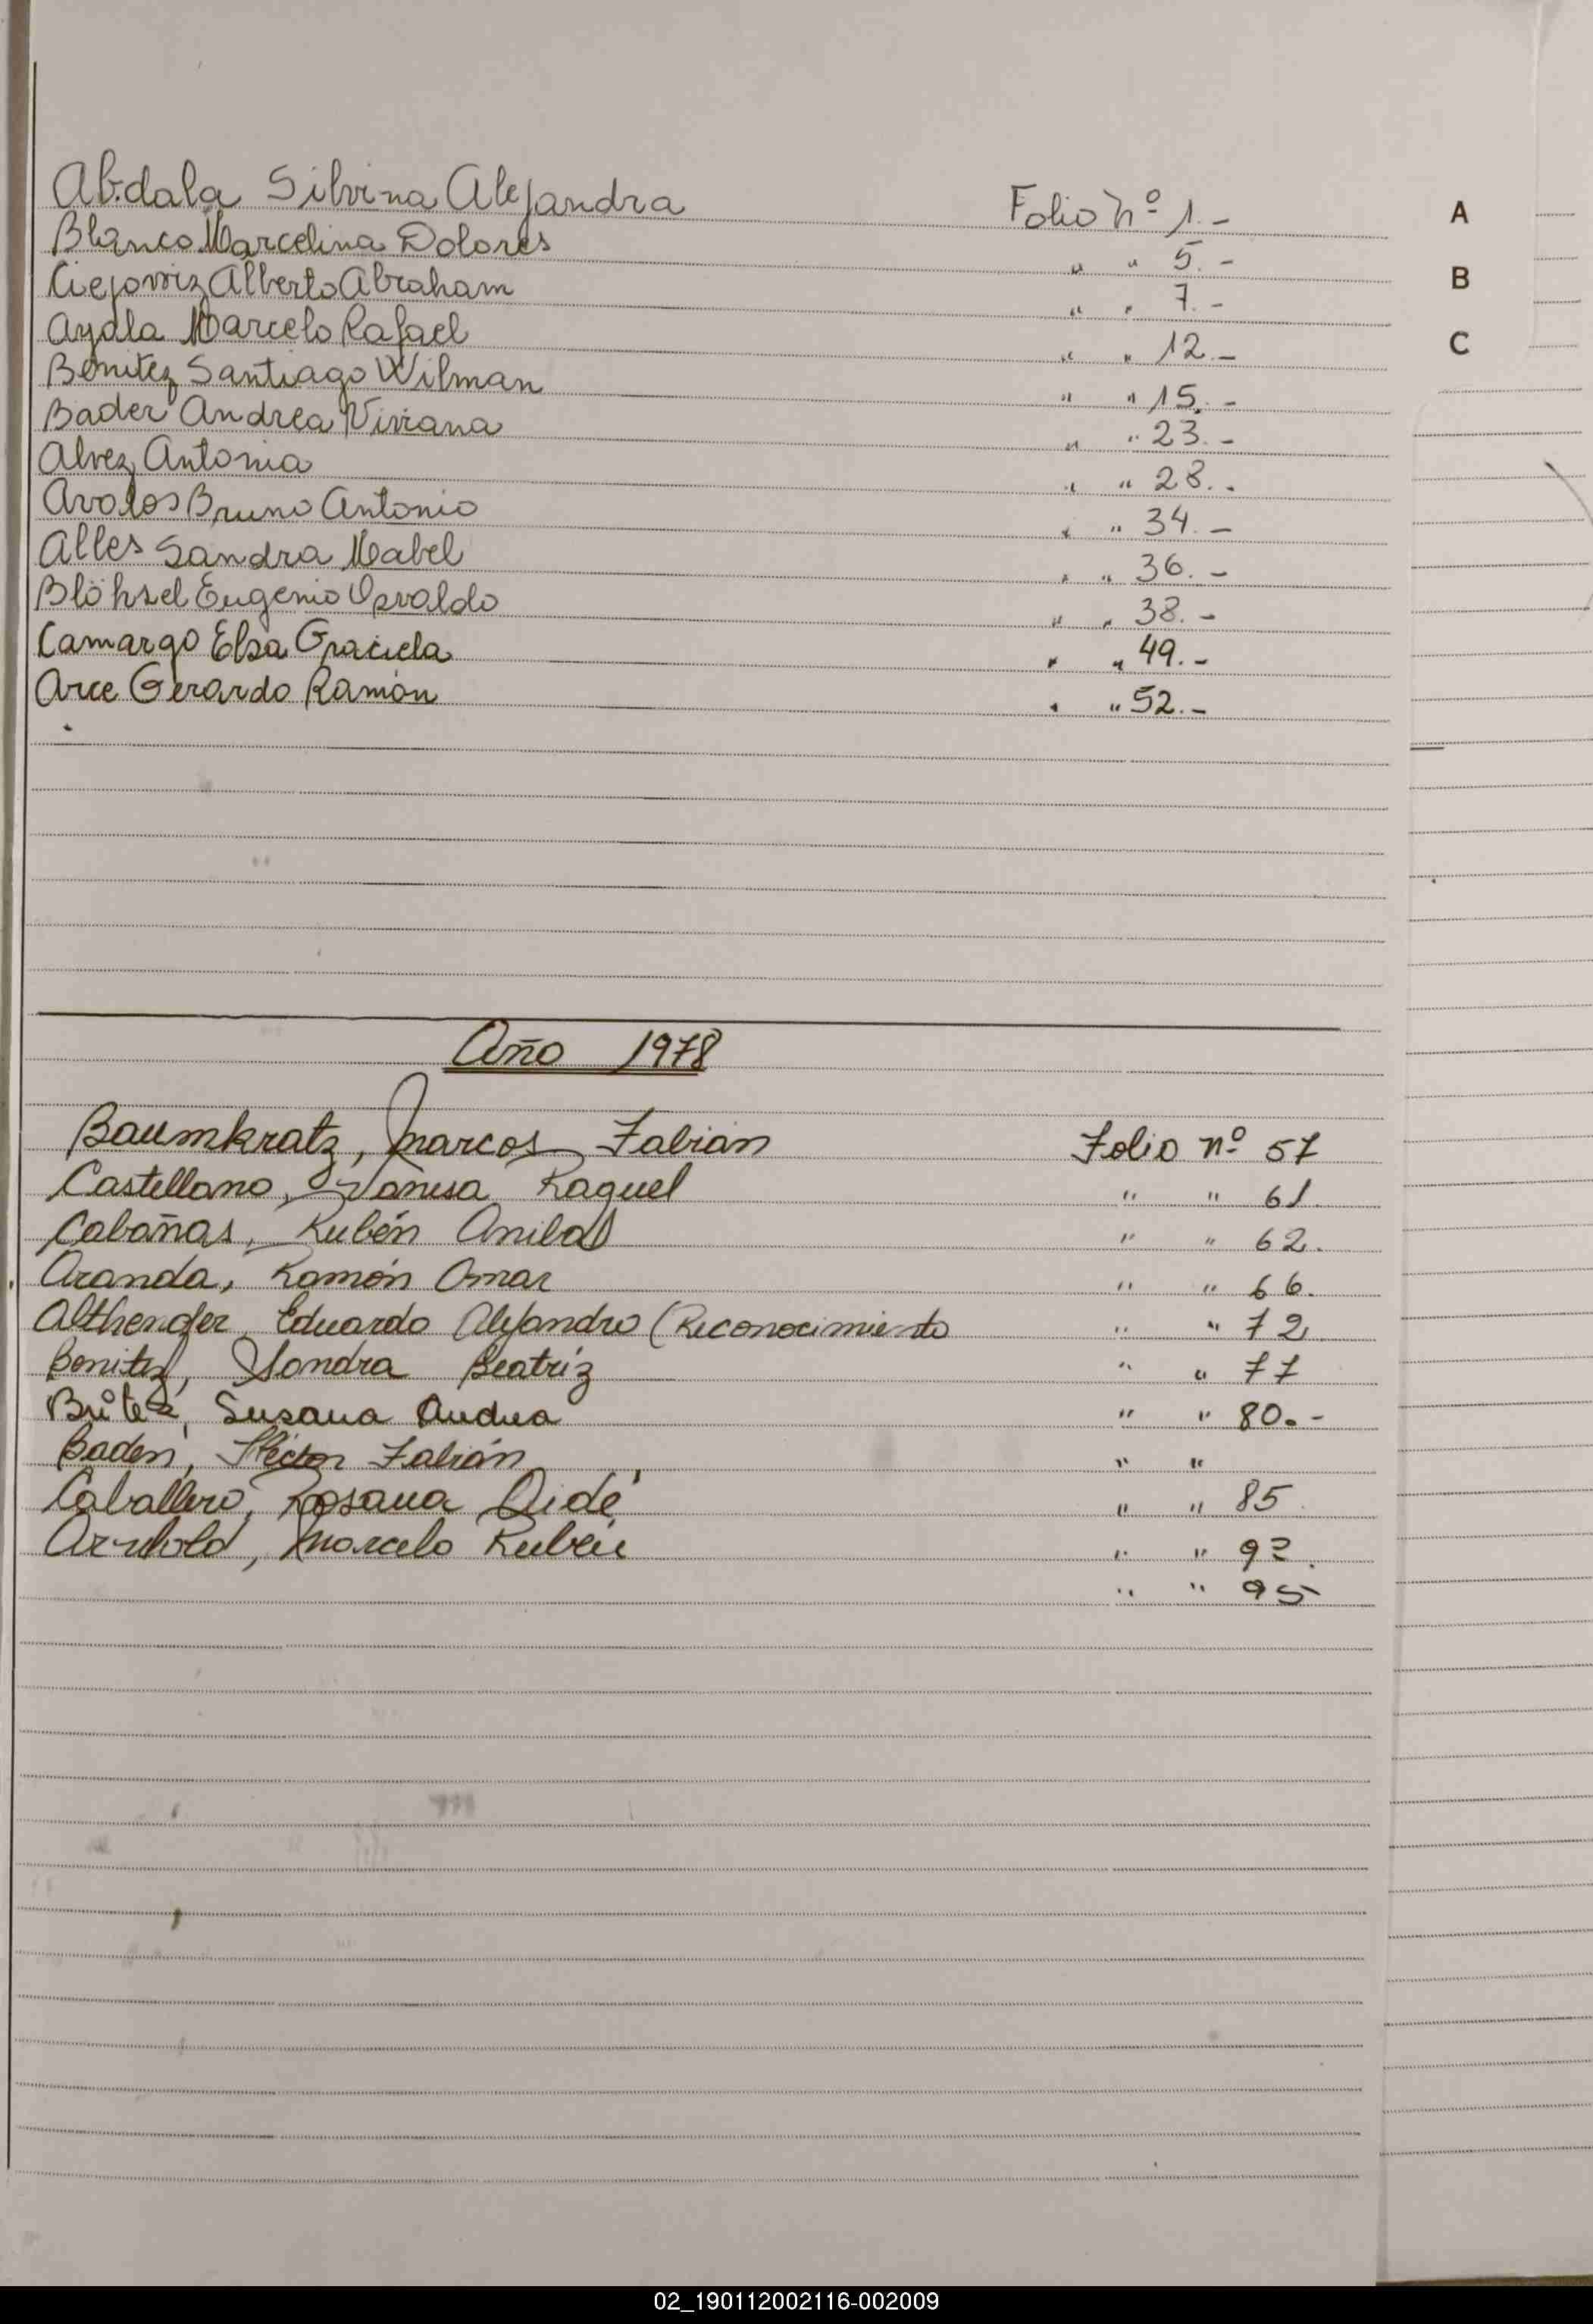 Abdala Silvina Alejandra Folio Nº 1.- A
Blanco Marcelina Dolores " " 5.-
B
Ciejoviz Alberto Abraham " " 7.-
Ayala Marcelo Rafael " " 12.- C
Benitez Santiago Wilman " " 15.-
Bader Andrea Viviana " " 23.-
Alvez Antonia " " 28.-
Avalos Bruno Antonio " " 34.-
Alles Sandra Mabel " " 36.-
Eugenio Osvaldo " " 38.-
Camargo Elsa Graciela " " 49.-
Arce Gerardo Ramón " " 52.-
Año 1978
Baumkratz, Marcos Fabián Folio nº 57
Castellano, Vanesa Raquel " " 61.
Cabañas, Rubén Anibal " " 62.
Aranda, Ramón Omar " " 66.
Eduardo Alejandro (Reconocimiento " " 72.
Benitez, Sandra Beatríz " " 77
Brítez, Susana Andrea " " 80.-
Baden, Héctor Fabián " "
Caballero, Rosana Aidé " " 85.
Arnhold, Marcelo Rubén " " 92.
" " 95
02_190112002116-002009